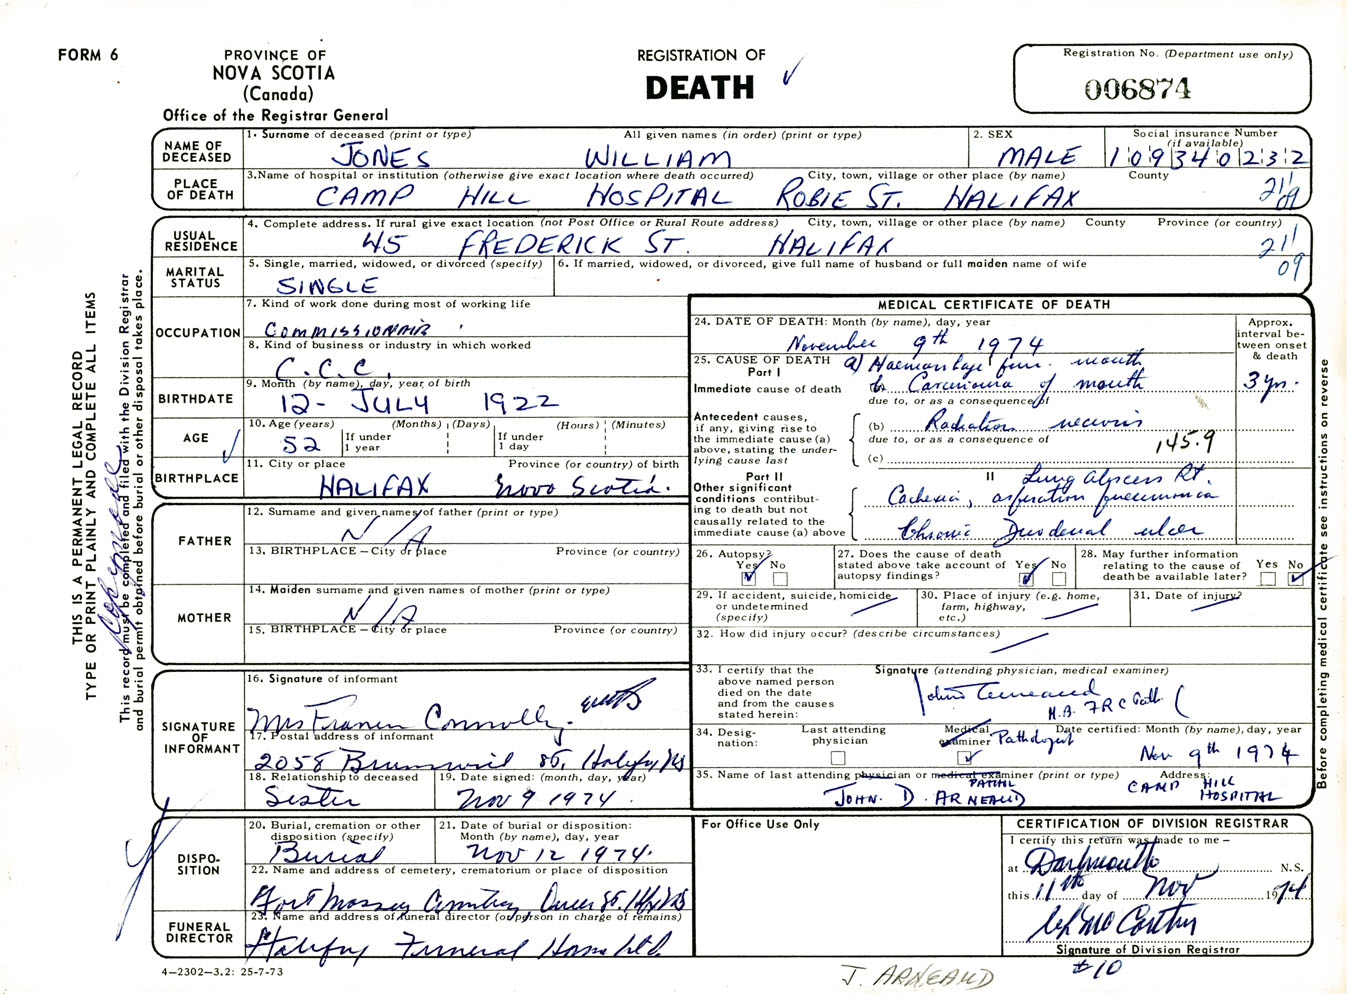 FORM 6
PROVINCE OF
NOVA SCOTIA
(Canada)
Office of the Registrar General
REGISTRATION OF
DEATH
Registration No. (Department use only)
006874
NAME OF
DECEASED
1. Surname of deceased (print or type) All given names (in order) (print or type)
JONES WILLIAM
2. SEX
MALE
Social insurance Number
(if available)
109340232
PLACE
OF DEATH
3. Name of hospital or institution (otherwise give exact location where death occurred) City, town, village or other place (by name) County
CAMP HILL HOSPITAL ROBIE ST. HALIFAX
211
09
USUAL
RESIDENCE
4. Complete address. If rural give exact location (not Post Office or Rural Route address) City, town, village or other place (by name) County Province (or country)
45 FREDERICK ST. HALIFAX
211
09
MARITAL
STATUS
5. Single, married, widowed, or divorced (specify)
SINGLE
6. If married, widowed, or divorced, give full name of husband or full maiden name of wife
OCCUPATION
7. Kind of work done during most of working life
COMMISSIONAIR
8. Kind of business or industry in which worked
C.C.C.
BIRTHDATE
9. Month (by name), day, year, of birth
12 - JULY 1922
AGE
10. Age (years) (Months) (Days) (Hours) (Minutes)
52 If under
1 year
If under
1 day
BIRTHPLACE
11. City or place Province (or country) of birth
HALIFAX Nova Scotia.
FATHER
12. Surname and given names of father (print or type)
N/A
13. BIRTHPLACE – City or place Province (or country)
MOTHER
14. Maiden surname and given names of mother (print or type)
N/A
15. BIRTHPLACE – City or place Province (or country)
SIGNATURE
OF
INFORMANT
16. Signature of informant
Mrs Francis Connolly.
17. Postal address of informant
2058 Brunswick St. Halifax NS
18. Relationship to deceased
Sister
19. Date signed: (month, day, year)
Nov 9 1974.
DISPO-
SITION
20. Burial, cremation or other
disposition (specify)
Burial
21. Date of burial or disposition:
Month (by name), day, year
Nov 12 1974.
22. Name and address of cemetery, crematorium or place of disposition
Fort Massey Cemetery Queen St. Hfx NS
FUNERAL
DIRECTOR
23. Name and address of funeral director (or person in charge of remains)
Halifax Funeral Home Ltd.
4–2302–3.2: 25-7-73
MEDICAL CERTIFICATE OF DEATH
24. DATE OF DEATH: Month (by name), day, year
November 9th 1974
Approx.
interval be-
tween onset
& death
25. CAUSE OF DEATH
Part I
Immediate cause of death
a) Haemorrhage from mouth
Carcinoma of mouth
3 yrs.
due to, or as a consequence of
Antecedent causes,
if any, giving rise to
the immediate cause (a)
above, stating the under-
lying cause last
(b) Radiation necrosis
due to, or as a consequence of
145.9
(c)
Part II
Other significant
conditions contribut-
ing to death but not
causally related to the
immediate cause (a) above
II Lung Abscess Rt.
Cachexia, aspiration pneumonia
Chronic Duodenal ulcer
26. Autopsy?
Yes No
27. Does the cause of death
stated above take account of
autopsy findings?
Yes No
28. May further information
relating to the cause of
death be available later?
Yes No
29. If accident, suicide, homicide
or undetermined
(specify)
30. Place of injury (e.g. home,
farm, highway,
etc.)
31. Date of injury?
32. How did injury occur? (describe circumstances)
33. I certify that the
above named person
died on the date
and from the causes
stated herein:
Signature (attending physician, medical examiner)
John Arneaud
M.B. FRC Path
34. Desig-
nation:
Last attending
physician
Medical
examiner
Pathologist
Date certified: Month (by name), day, year
Nov 9th 1974
35. Name of last attending physician or medical examiner (print or type) Address:
PATHOL
JOHN. D. ARNEAUD
CAMP HILL
HOSPITAL
For Office Use Only
CERTIFICATION OF DIVISION REGISTRAR
I certify this return was made to me –
at Dartmouth N.S.
this 11th day of Nov 1974
Signature of Division Registrar
#10
J. ARNEAUD
THIS IS A PERMANENT LEGAL RECORD
TYPE OR PRINT PLAINLY AND COMPLETE ALL ITEMS
This record must be completed and filed with the Division Registrar
and burial permit obtained before burial or other disposal takes place.
Before completing medical certificate see instructions on reverse